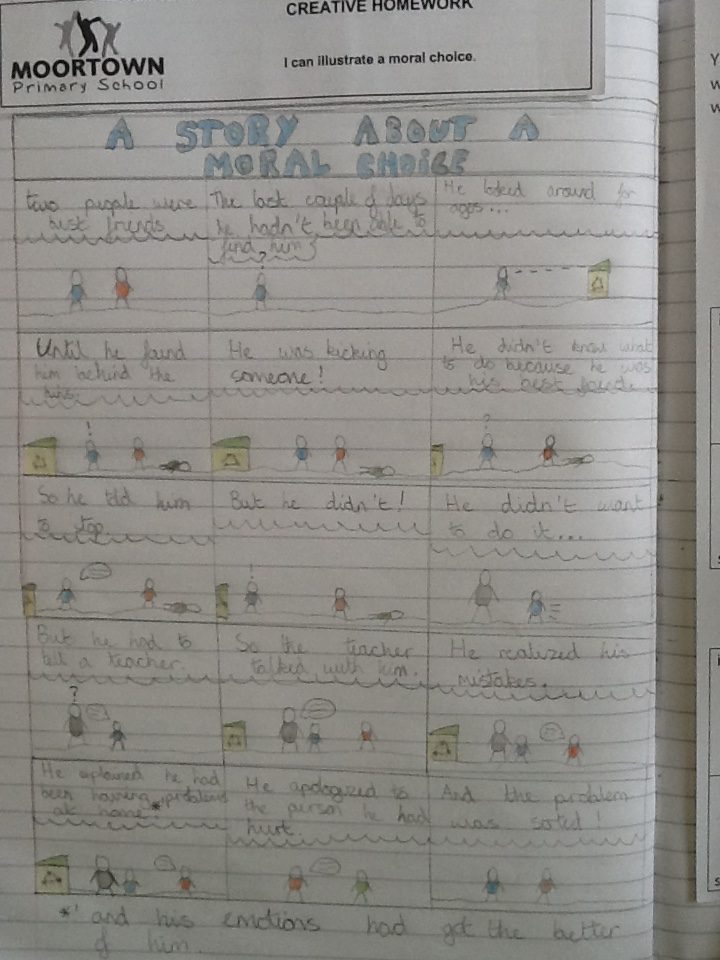 CREATIVE HOMEWORK
I can illustrate a moral choice.
MOORTOWN
Primary School
A STORY ABOUT A
MORAL CHOICE
two people were
best friends
The last couple of days
he hadn't been able to
find him
?
He looked around for
ages...
Until he found
him behind the
bins.
!
He was kicking
someone!
He didn't know what
to do because he was
his best friend.
?
So he told him
to stop
But he didn't!
!
He didn't want
to do it...
But he had to
tell a teacher.
?
So the teacher
talked with him.
He realized his
mistakes.
He explained he had
been having problems
at home.*
He apologized to
the person he had
hurt.
And the problem
was sorted!
* and his emotions had got the better
of him